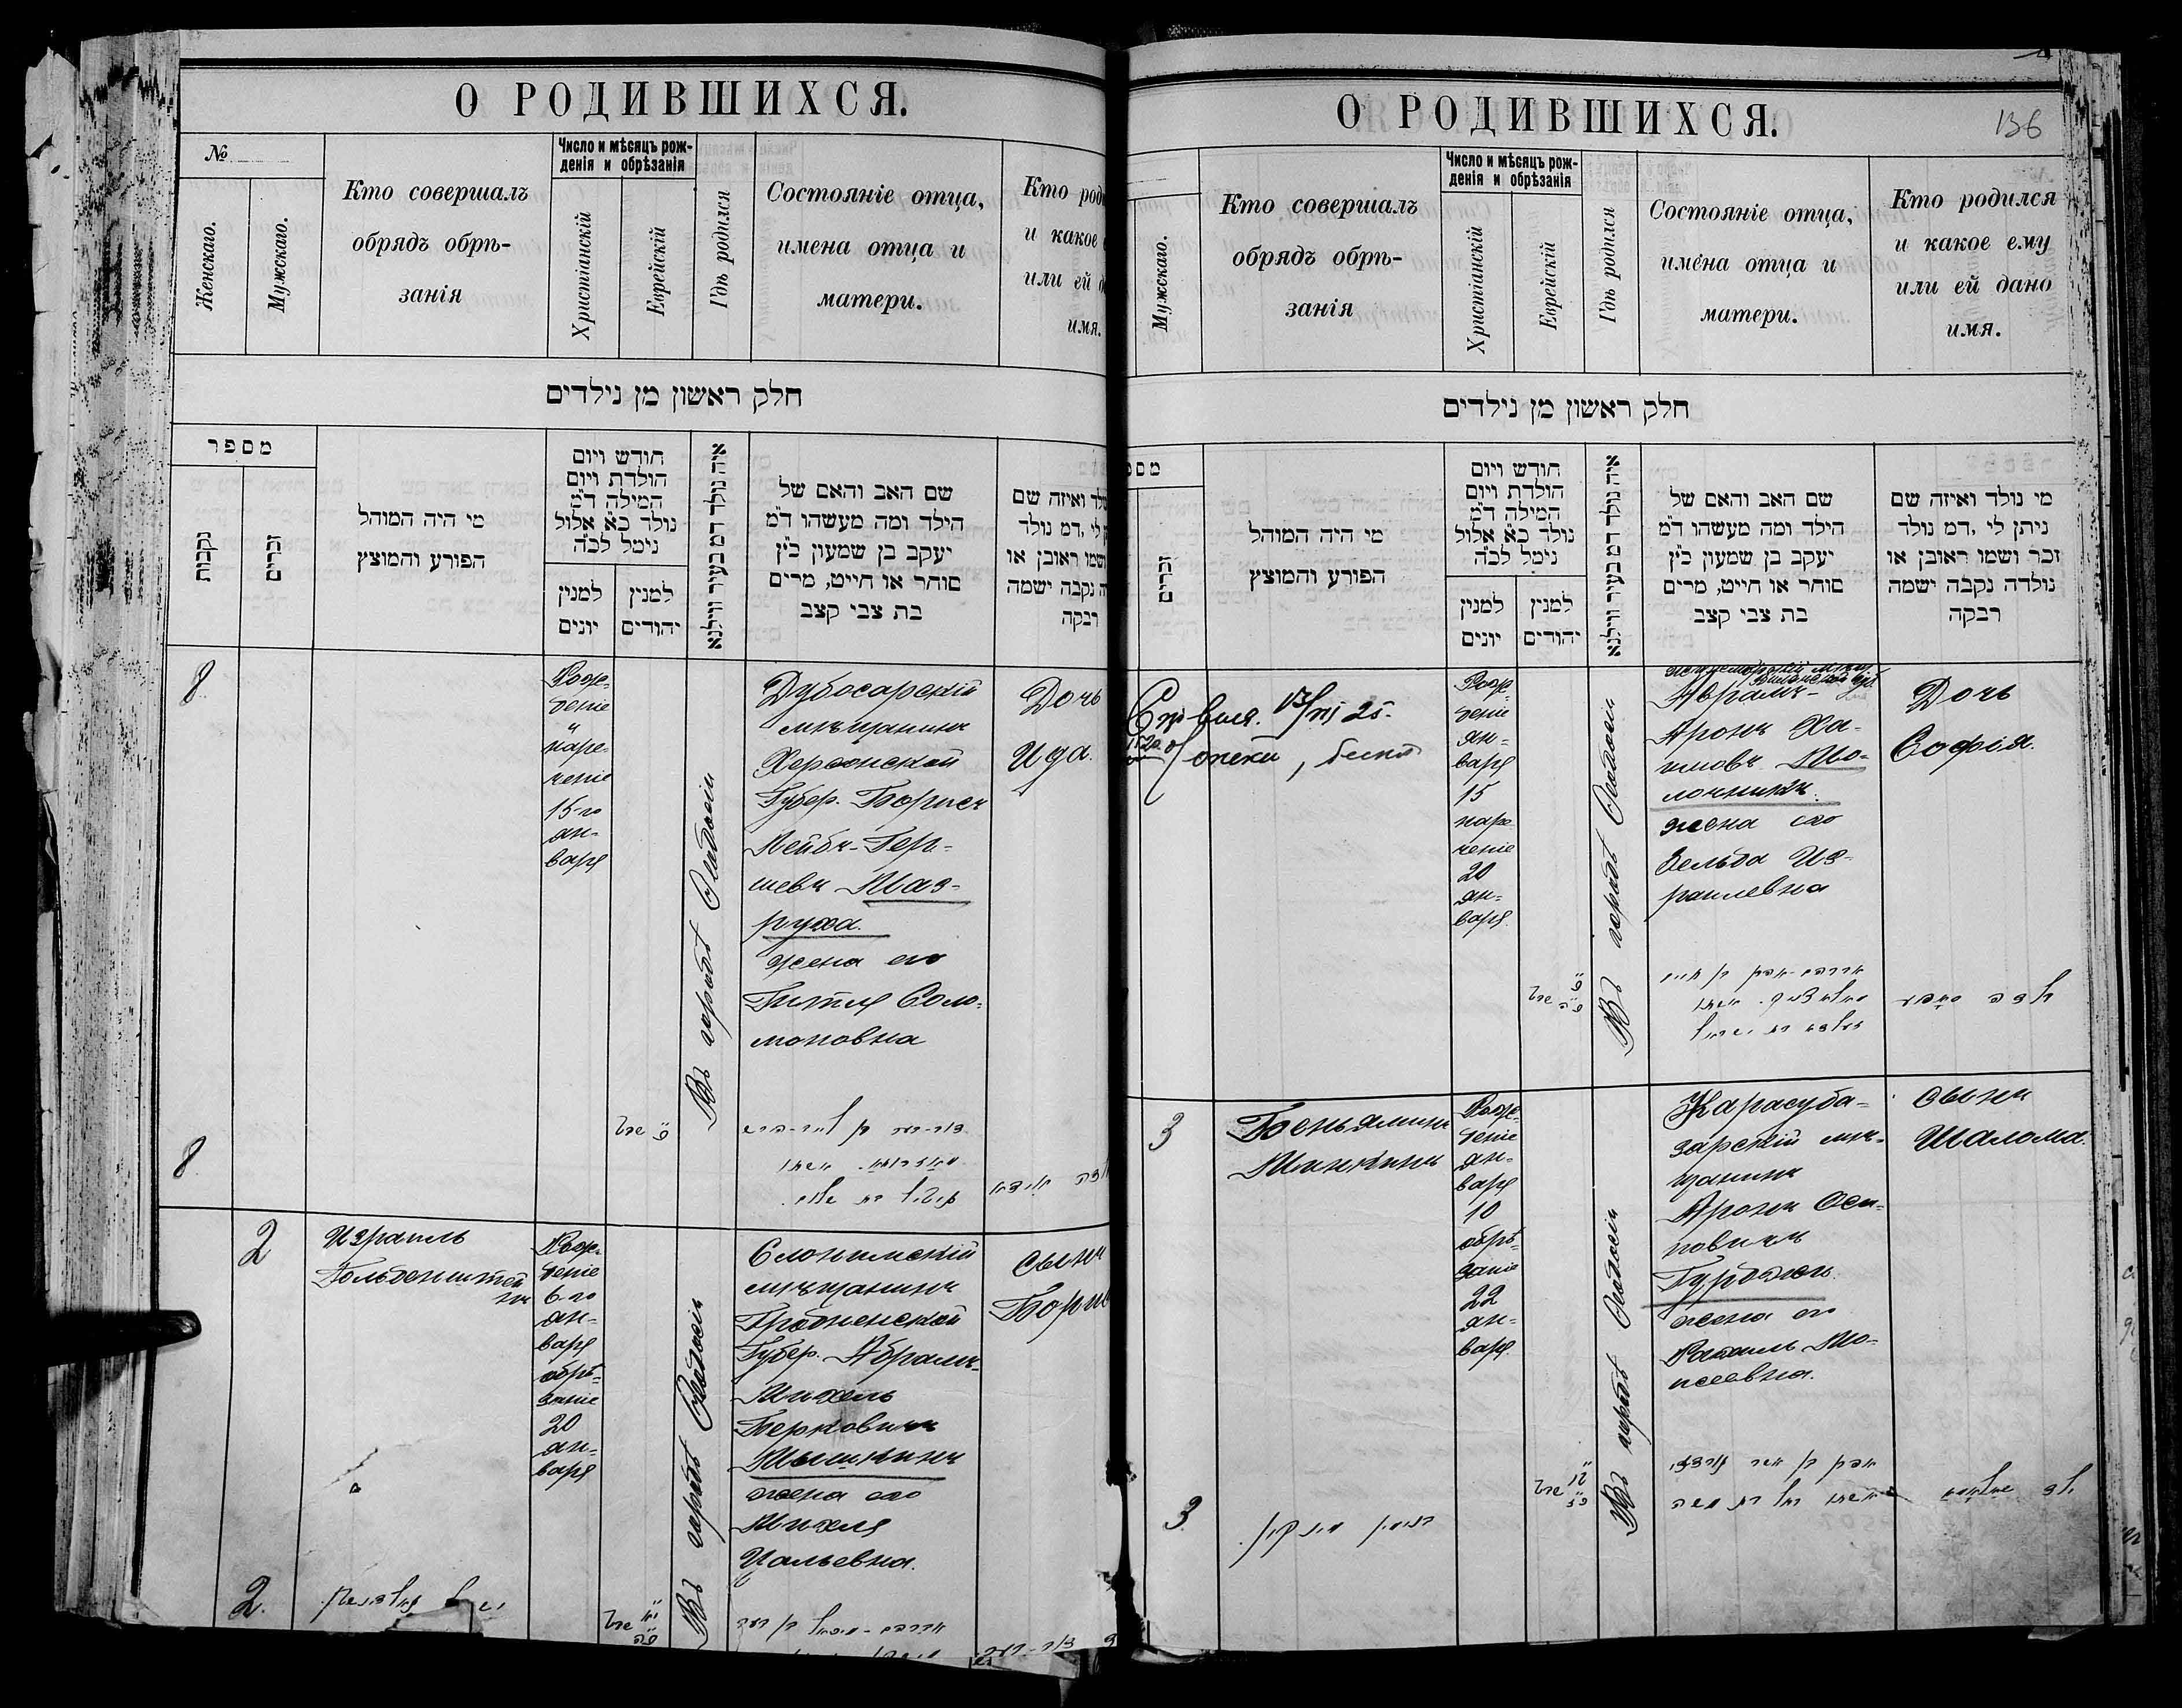 О РОДИВШИХСЯ.
№
Женскаго.
Мужскаго.
Кто совершалъ
обрядъ обрѣ-
занія
Число и мѣсяцъ рож-
денія и обрѣзанія
Христіанскій
Еврейскій
Гдѣ родился
Состояніе отца,
имена отца и
матери.
Кто род
и какое
или ей д
имя.
חלק ראשון מן נילדים
מספר
נקבות
זכרים
מי היה המוהל
הפורע והמוצץ
חודש ויום
הולדת ויום
המילה ד״מ
נולד כא אלול
נימל לכ״ה
למנין
יונים
למנין
יהודים
איה נולד דמ בעיר ווילנא
שם האב והאם של
הילד ומה מעשהו ד״מ
יעקב בן שמעון כ״ץ
סוחר או חייט, מרים
בת צבי קצב
ולד ואיזה שם
לי, דמ נולד
ושמו ראובן או
ה נקבה ישמה
רבקה
8.
Рож-
деніе
и
наре-
ченіе
15-го
ян-
варя
Въ городѣ Ѳеодосіи
Дубосарскій
мѣщанинъ
Херсонской
Губер. Борисъ
Лейбъ-Гер-
шевъ Маз-
руха.
жена его
Гитля Соло-
моновна
Дочь
Ида.
8.
2
Израиль
Гольденштей
нъ
Рож-
деніе
6-го
ян-
варя
обрѣ-
заніе
20
ян-
варя
Въ городѣ Ѳеодосіи
Слонимскій
мѣщанинъ
Гродненской
Губер. Абрамъ-
Михель
Берковичъ
Мышкинъ
жена его
Михля
Цальевна.
сынъ
Бори
2.
О РОДИВШИХСЯ.
136
Мужскаго.
Кто совершалъ
обрядъ обрѣ-
занія
Число и мѣсяцъ рож-
денія и обрѣзанія
Христіанскій
Еврейскій
Гдѣ родился
Состояніе отца,
имена отца и
матери.
Кто родился
и какое ему
или ей дано
имя.
חלק ראשון מן נילדים
מס
זכרים
מי היה המוהל
הפורע והמוצץ
חודש ויום
הולדת ויום
המילה ד״מ
נולד כא אלול
נימל לכ״ה
למנין
יונים
למנין
יהודים
איה נולד דמ בעיר ווילנא
שם האב והאם של
הילד ומה מעשהו ד״מ
יעקב בן שמעון כ״ץ
סוחר או חייט, מרים
בת צבי קצב
מי נולד ואיזה שם
ניתן לי, דמ נולד
זכר ושמו ראובן או
נולדה נקבה ישמה
רבקה
Рож-
деніе
ян-
варя
15
наре-
ченіе
20
ян-
варя.
Въ городѣ Ѳеодосіи
Абрамъ-
Аронъ Ха-
имовъ Мо-
лочникъ.
жена его
Зельда Из-
раилевна
Дочь
Софія.
3
Беньяминъ
Минкинъ
Рож-
деніе
ян-
варя
10
обрѣ-
заніе
22
ян-
варя.
Въ городѣ Ѳеодосіи
Карасуба-
зарскій мѣ-
щанинъ
Аронъ Оси-
повичъ
Гурджи.
жена его
Рахиль Мо-
исеевна.
сынъ
Шалома.
3.
בנימין מינקין.